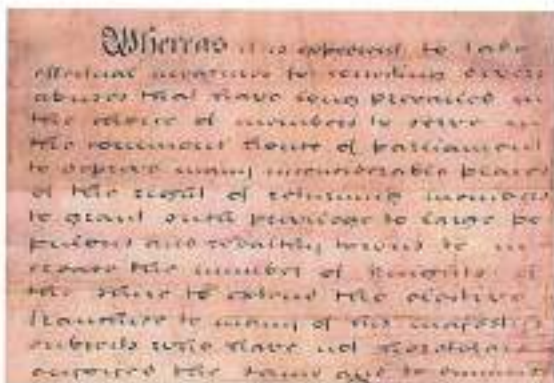 Whereas it is expedient to take
effectual measures for correcting divers
abuses that have long prevailed in
the choice of members to serve in
the commons house of parliament
to deprive many inconsiderable places
of the right of returning members
to grant such privilege to large po
pulous and wealthy towns to in
crease the number of knights of
the shire to extend the elective
franchise to many of his majesty's
subjects who have not heretofore
enjoyed the same and to